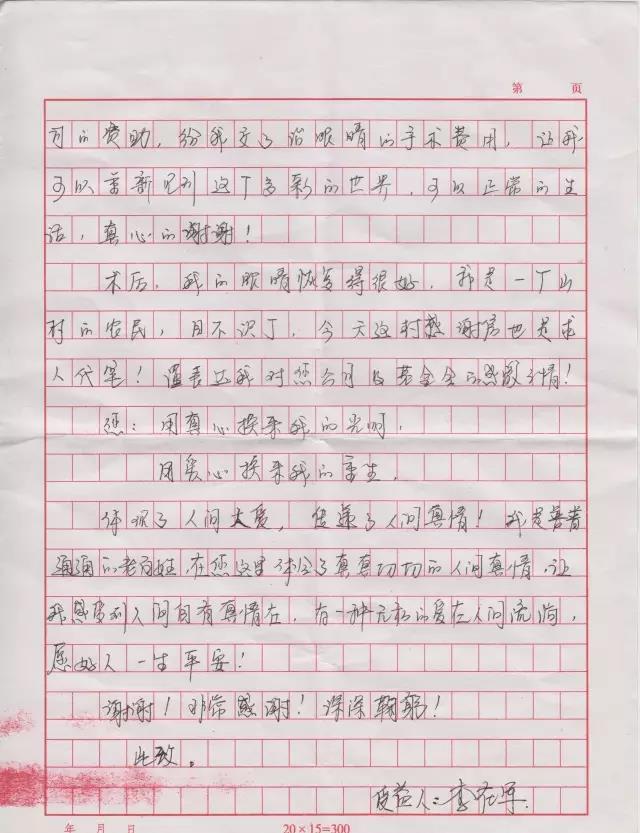 第 页
司的资助,给我交了治眼睛的手术费用,让我
可以重新见到这个多彩的世界,可以正常的生
活,真心的谢谢!
术后,我的眼睛恢复得很好,我是一个山
村的农民,目不识丁,今天这封感谢信也是求
人代笔!谨表达我对您公司及基金会的感激之情!
您:用真心换来我的光明,
用爱心换来我的重生,
体现了人间大爱,传递了人间真情!我是普普
通通的老百姓,在您这里体会了真真切切的人间真情,让
我感受到人间自有真情在,有一种无私的爱在人间流淌,
愿好人一生平安!
谢谢!非常感谢!深深鞠躬!
此致。
受益人:李在军
年 月 日 20×15=300